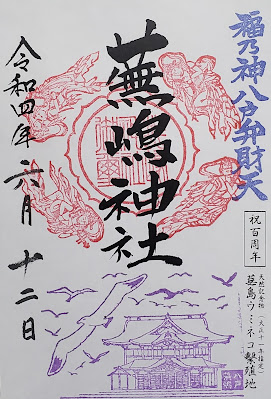 福乃神八戸弁財天
祝百周年
天然記念物(大正十一年指定)
蕪島ウミネコ繁殖地
蕪嶋神社
令和四年六月十二日